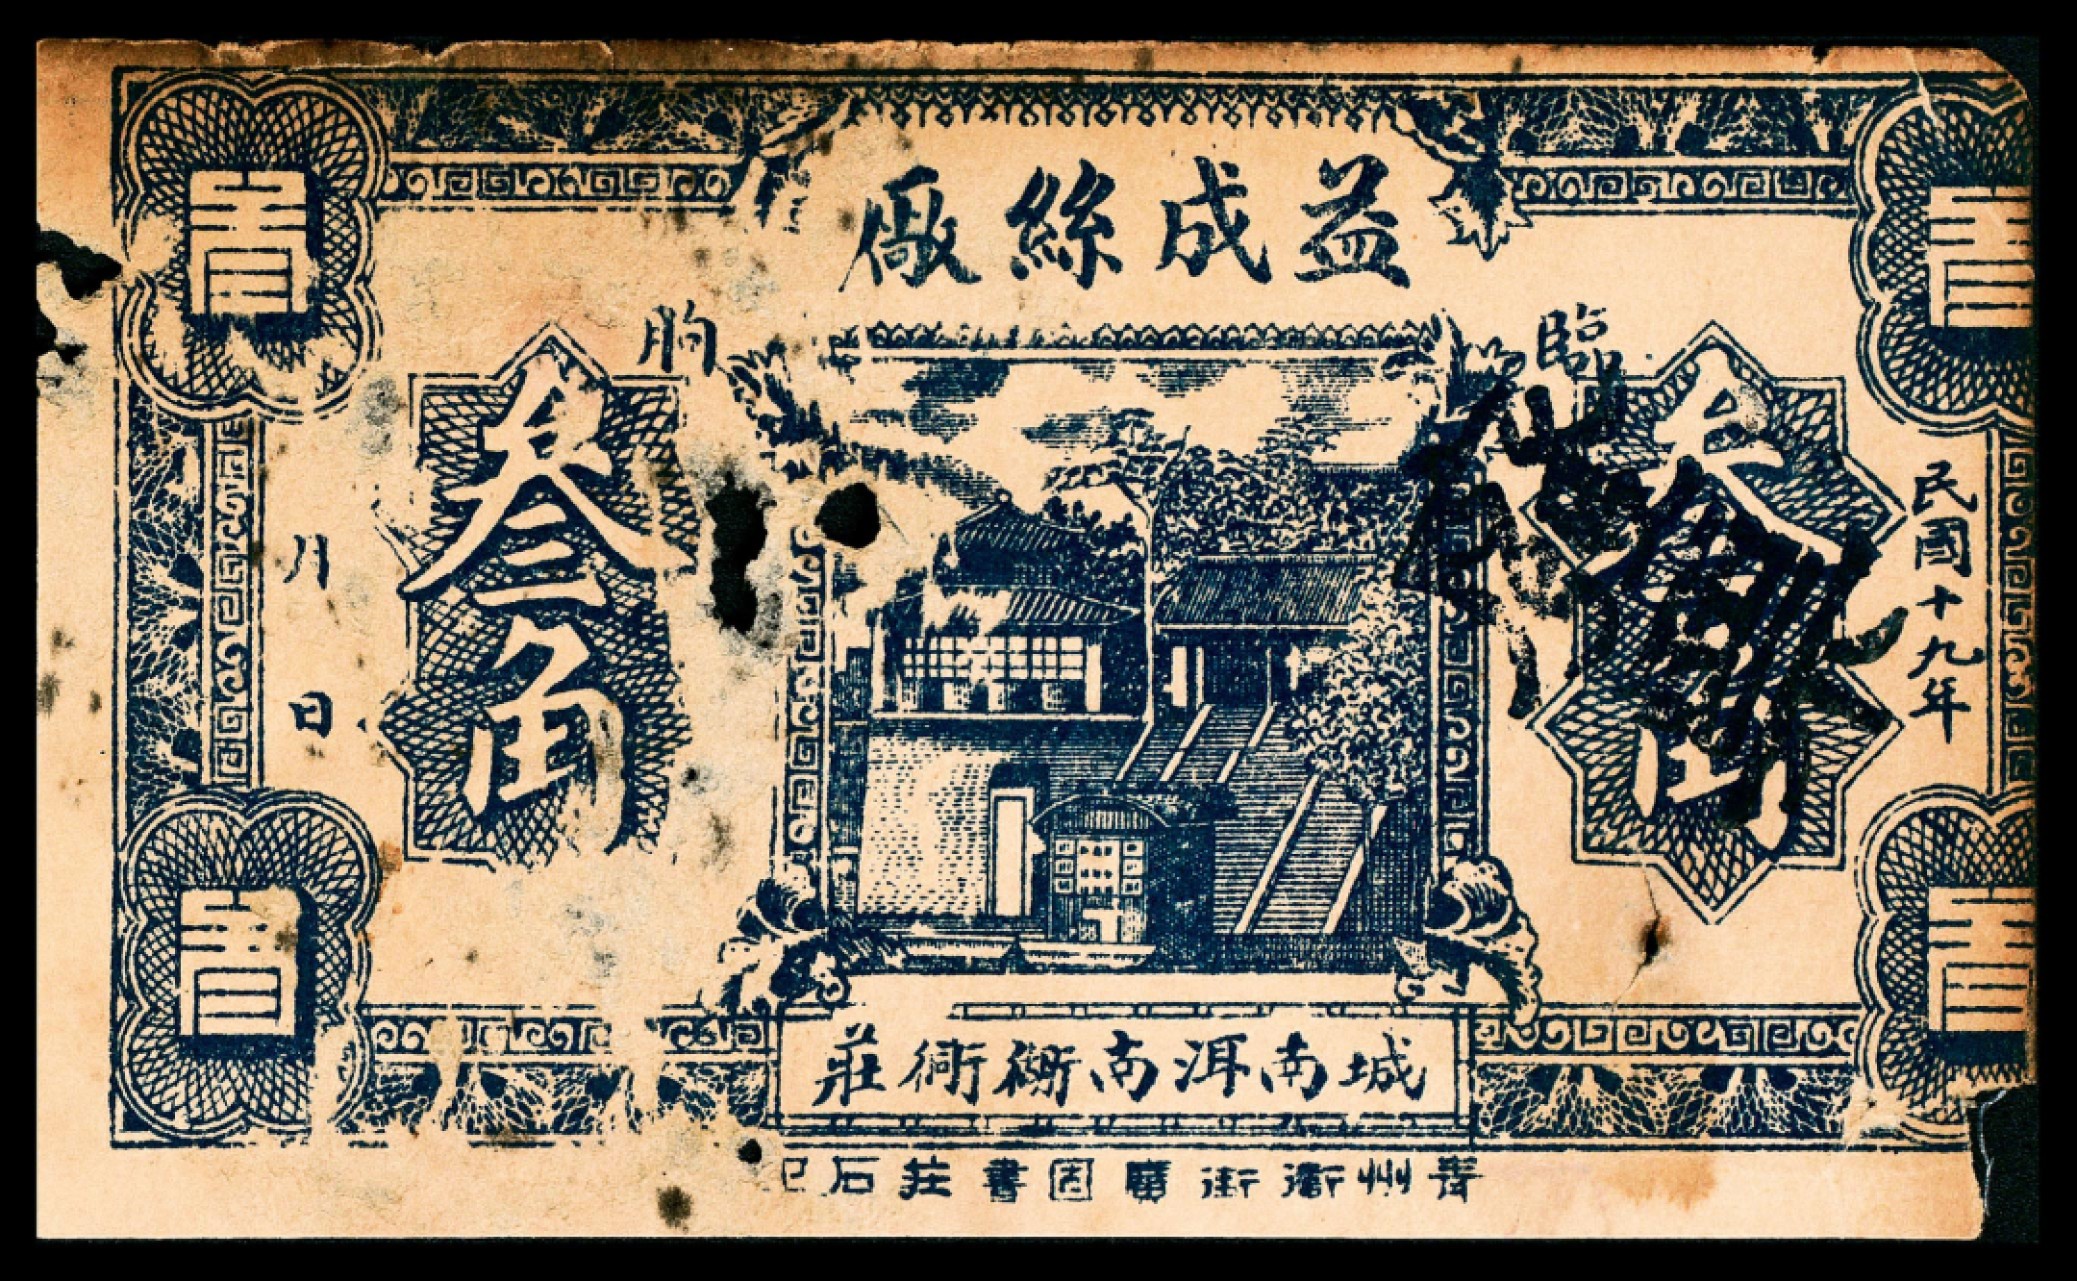 益成絲厰
臨朐
叁角
叁角
民國十九年
月
日
城南洱南衚衕莊
青州衛街廣固書莊石印